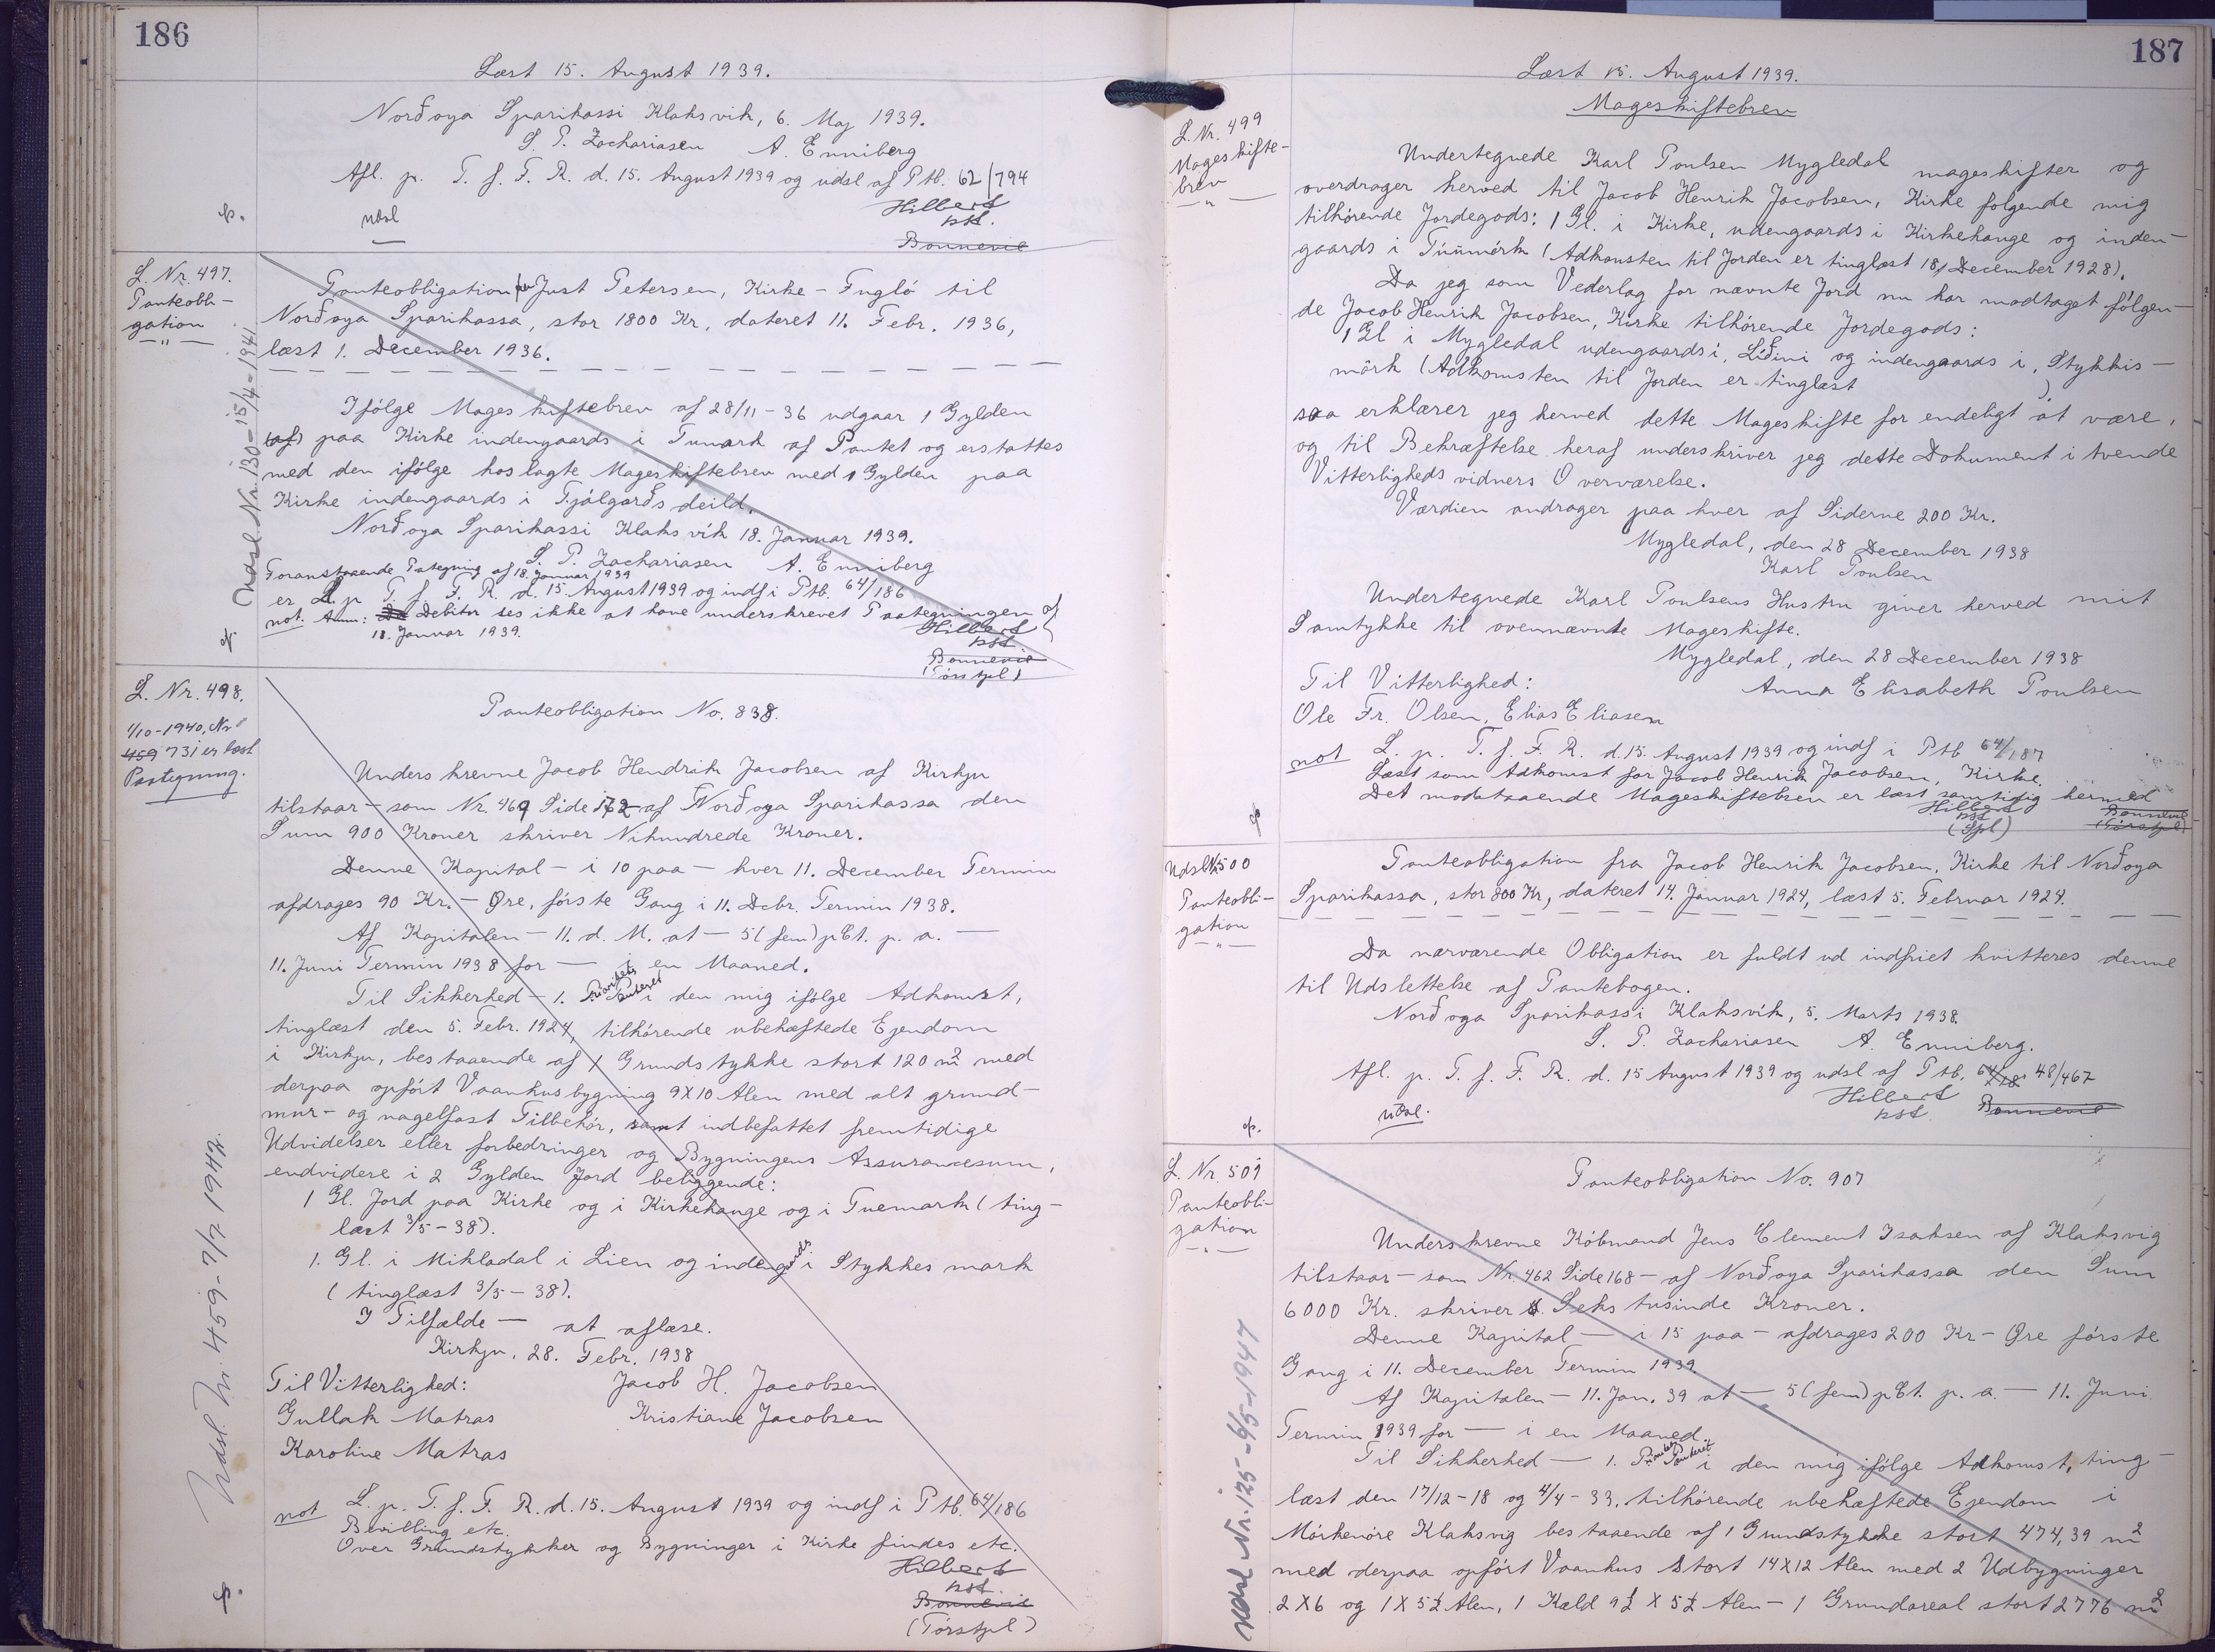 186
Læst 15. August 1939.
Norðoya Sparikassi Klaksvik, 6. Maj 1939.
S. P. Zachariasen A. Enniberg
Afl. p. T. f. F. R. d. 15. August 1939 og udsl af Ptb. 62/794
udsl
Hilbert
kst.
Bonnevie
L. Nr. 497.
Panteobli-
gation
Udsl Nr. 130 - 15/4 - 1941
Panteobligation fra Just Petersen, Kirke - Fugló til
Norðoya Sparikassa, stor 1800 Kr, dateret 11. Febr. 1936,
læst 1. December 1936.
Ifólge Mageskiftebrev af 28/11 - 36 udgaar 1 Gylden
(af) paa Kirke indengaards i Tunark af Pantet og erstattes
med den ifólge hoslagte Mageskiftebrev med 1 Gylden paa
Kirke indengaards i Tjálgarðs deild.
Norðoya Sparikassi Klaksvík 18. Januar 1939.
S. P. Zachariasen A. Enniberg
Foranstaaende Pategning af 18. Januar 1939
er L. p. T. f. F. R. d. 15. August 1939 og indf i Ptb. 64/186
not. Anm: Debitor ses ikke at have underskrevet Paategningen af
18. Januar 1939.
Hilbert
kst.
Bonnevie
(Tórstpl)
L. Nr. 498.
1/10 - 1940, Nr
459 731 er læst
Paategning.
Udsl. Nr. 459 - 7/7 1942.
Panteobligation No. 838.
Underskrevne Jacob Hendrik Jacobsen af Kirkju
tilstaar - som Nr. 469 Side 172 - af Norðoya Sparikassa den
Sum 900 Kroner skriver Nihundrede Kroner.
Denne Kapital - i 10 paa - hver 11. December Termin
afdrages 90 Kr. - Øre, fórste Gang i 11. Dcbr. Termin 1938.
Af Kapitalen - 11. d. M. at - 5 (fem) pCt. p. a. -
11. Juni Termin 1938 for - i en Maaned.
Til Sikkerhed - 1. Prioritets Panteret i den mig ifólge Adkomst,
tinglæst den 5. Febr. 1924, tilhórende ubehæftede Ejendom
i Kirkju, bestaaende af 1 Grundstykke stort 120 m² med
derpaa opfórt Vaanhusbygning 9X10 Alen med alt grund-
mur- og nagelfast Tilbehór, samt indbefattet fremtidige
Udvidelser eller forbedringer og Bygningens Assurancesum,
endvidere i 2 Gylden Jord beliggende:
1 Gl. Jord paa Kirke og i Kirkehange og i Tuemark (ting-
læst 3/5 - 38).
1. Gl. i Mikladal i Lien og indengards i Stykkes mark
(tinglæst 3/5 - 38).
I Tilfælde - at aflæse.
Kirkju, 28. Febr. 1938
Til Vitterlighed: Jacob H. Jacobsen
Gullak Matras Kristiane Jacobsen
Karoline Matras
not L. p. T. f. F. R. d. 15. August 1939 og indf i Ptb. 64/186
Bevilling etc.
Over Grundstykker og Bygninger i Kirke findes etc.
Hilbert
kst.
Bonnevie
(Tórstpl)
187
Læst 15. August 1939.
Mageskiftebrev
L. Nr. 499
Mageskifte-
brev
Undertegnede Karl Poulsen Mygledal mageskifter og
overdrager herved til Jacob Henrik Jacobsen, Kirke følgende mig
tilhórende Jordegods: 1 Gl. i Kirke, udengaards i Kirkehange og inden-
gaards i Túnmórk (Adkomsten til Jorden er tinglæst 18, December 1928).
Da jeg som Vederlag for nævnte Jord nu har modtaget fólgen-
de Jacob Henrik Jacobsen, Kirke tilhórende Jordegods:
1 Gl i Mygledal udengaards i, Líðini og indengaards i, Stykkis-
mórk (Adkomsten til Jorden er tinglæst )
saa erklærer jeg herved dette Mageskifte for endeligt at være,
og til Bekræftelse heraf underskriver jeg dette Dokument i tvende
Vitterligheds vidners Overværelse.
Værdien andrager paa hver af Siderne 200 Kr.
Mygledal, den 28 December 1938
Karl Poulsen
Undertegnede Karl Poulsens Hustru giver herved mit
Samtykke til ovennævnte Mageskifte.
Mygledal, den 28 December 1938
Til Vitterlighed: Anna Elisabeth Poulsen
Ole Fr. Olsen, Elias Eliasen
not L. p. T. f. F. R. d. 15. August 1939 og indf i Ptb 64/187
Læst som Adkomst for Jacob Henrik Jacobsen, Kirke.
Det modstaaende Mageskiftebrev er læst samtidig hermed
Hilbert
kst
(Spl)
Bonnevie
(Tórstpl)
Udsl Nr 500
Panteobli-
gation
Panteobligation fra Jacob Henrik Jacobsen, Kirke til Norðoya
Sparikassa, stor 800 Kr, dateret 14. Januar 1924, læst 5. Februar 1924.
Da nærværende Obligation er fuldt ud indfriet kvitteres denne
til Udslettelse af Pantebogen.
Norðoya Sparikassi Klaksvík, 5. Marts 1938.
S. P. Zachariasen A. Enniberg.
Afl. p. T. f. F. R. d. 15 August 1939 og udsl af Ptb. 64/18 48/467
udsl.
Hilbert
kst.
Bonnevie
L. Nr. 501
Panteobli-
gation
Udsl Nr. 125 - 6/5 - 1947
Panteobligation No. 907
Underskrevne Kóbmand Jens Clement Isaksen af Klaksvig
tilstaar - som Nr. 462 Side 168 - af Norðoya Sparikassa den Sum
6000 Kr. skriver Seks tusinde Kroner.
Denne Kapital - i 15 paa - afdrages 200 Kr - Øre fórste
Gang i 11. December Termin 1939.
Af Kapitalen - 11. Jan. 39 at - 5 (fem) pCt. p. a. - 11. Juni
Termin 1939 for - i en Maaned.
Til Sikkerhed - 1. Prioritets Panteret i den mig ifólge Adkomst, ting-
læst den 17/12 - 18 og 4/4 - 33. tilhórende ubehæftede Ejendom i
Mórkenóre Klaksvig bestaaende af 1 Grundstykke stort 474,39 m²
med derpaa opfórt Vaanhus stort 14X12 Alen med 2 Udbygninger
2X6 og 1X5½ Alen, 1 Kæld 9½ X 5½ Alen - 1 Grundareal stort 2776 m²